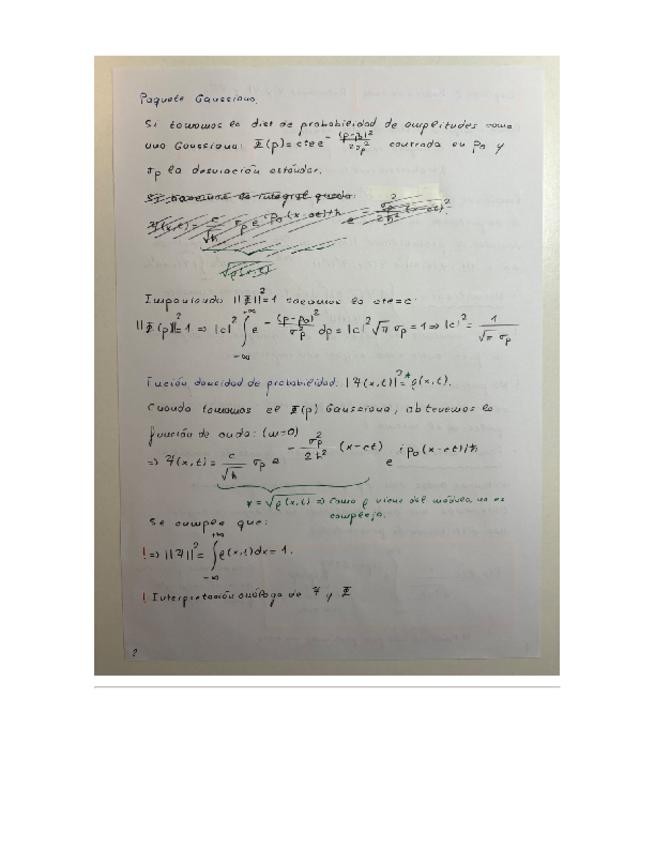 Paquete Gaussiano.
Si tomamos la dist de probabilidad de amplitudes como
una Gaussiana: Φ(p) = cte e^{-(p-p₀)²/2σ_p²} centrada en p₀ y
σ_p la desviación estándar.
Si hacemos la integral queda:
Ψ(x,t) = c/√ħ σ_p e^{ip₀(x-ct)/ħ} e^{-σ_p²/2ħ² (x-ct)²}
√ρ(x,t)
Imponiendo ||Φ||² = 1 sacamos la cte = c.
||Φ(p)||² = 1 ⇒ |c|² ∫_{-∞}^{+∞} e^{-(p-p₀)²/σ_p²} dp = |c|² √π σ_p = 1 ⇒ |c|² = 1/(√π σ_p)
Función densidad de probabilidad: |Ψ(x,t)|² * = ρ(x,t).
Cuando tomamos el Φ(p) Gaussiana, obtenemos la
función de onda: (m=0)
⇒ Ψ(x,t) = c/√ħ σ_p e^{-σ_p²/2ħ² (x-ct)} e^{ip₀(x-ct)/ħ}
* = √ρ(x,t) ⇒ Como ρ viene del módulo, no es
complejo.
Se cumple que:
! ⇒ ||Ψ||² = ∫_{-∞}^{+∞} ρ(x,t)dx = 1.
! Interpretación análoga de Ψ y Φ
2